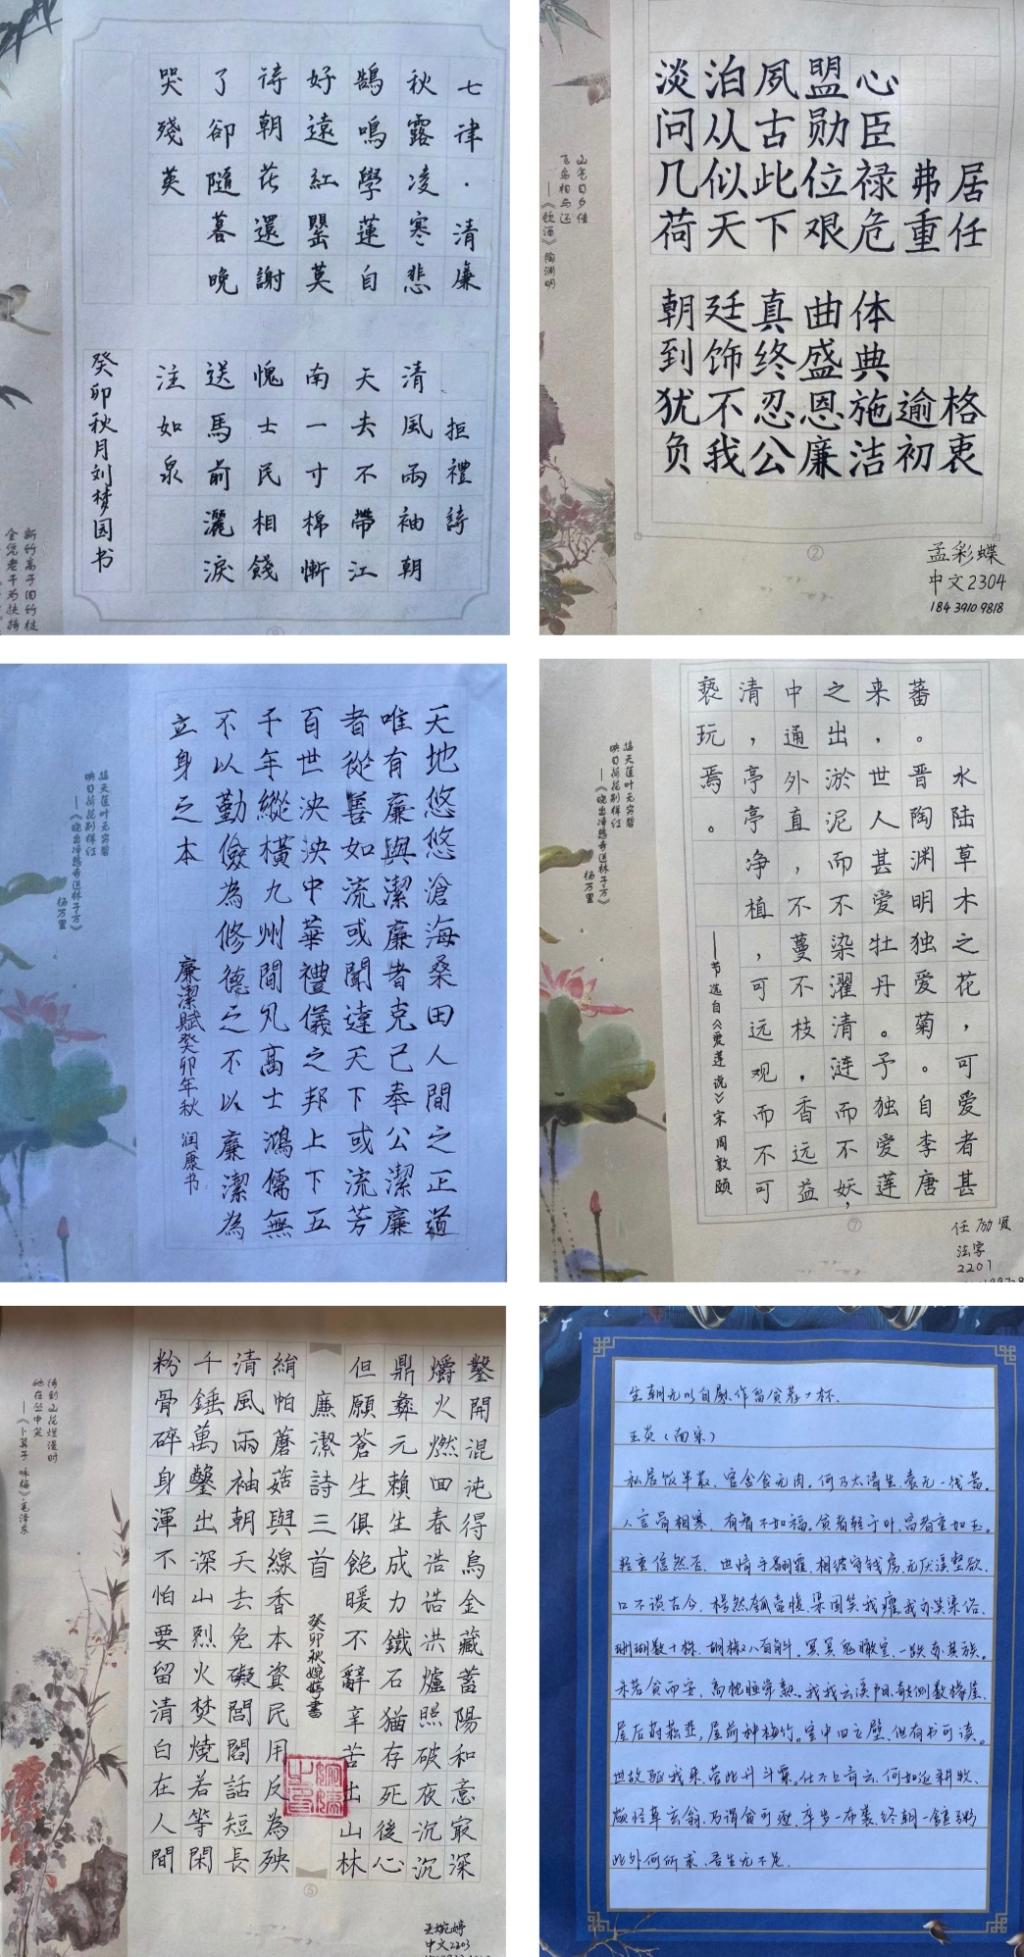 七律·清廉
秋露凌寒悲
鵠鳴學蓮自
好遠紅罌莫
待朝花還謝
了卻隨暮晚
哭殘英
拒禮詩
清風兩袖朝
天去不帶江
南一寸棉慚
愧士民相餞
送馬前灑淚
注如泉
癸卯秋月刘梦园书
新竹高于旧竹枝
全凭老干为扶持
淡泊夙盟心
问从古勋臣
几似此位禄弗居
荷天下艰危重任
朝廷真曲体
到饰终盛典
犹不忍恩施逾格
负我公廉洁初衷
山气日夕佳
飞鸟相与还
——《饮酒》陶渊明
②
孟彩蝶
中文2304
18439109818
天地悠悠滄海桑田人間之正道
唯有廉與潔廉者克己奉公潔廉
者從善如流或聞達天下或流芳
百世泱泱中華禮儀之邦上下五
千年縱橫九州間凡高士鴻儒無
不以勤儉為修德之不以廉潔為
立身之本
廉潔賦癸卯年秋 润康书
接天莲叶无穷碧
映日荷花别样红
——《晓出净慈寺送林子方》
杨万里
水陆草木之花，可爱者甚
蕃。晋陶渊明独爱菊。自李唐
来，世人甚爱牡丹。予独爱莲
之出淤泥而不染濯清涟而不妖，
中通外直，不蔓不枝，香远益
清，亭亭净植，可远观而不可
亵玩焉。
——节选自《爱莲说》宋 周敦颐
接天莲叶无穷碧
映日荷花别样红
——《晓出净慈寺送林子方》
杨万里
⑦
任励贤
法学
2201
鑿開混沌得烏金藏蓄陽和意最深
爝火燃回春浩浩洪爐照破夜沉沉
鼎彝元賴生成力鐵石猶存死後心
但願蒼生俱飽暖不辭辛苦出山林
廉潔詩三首
癸卯秋婉婷書
絹帕蘑菇與線香本資民用反為殃
清風兩袖朝天去免礙閭閻話短長
千錘萬鑿出深山烈火焚燒若等閑
粉骨碎身渾不怕要留清白在人間
待到山花烂漫时
她在丛中笑
——《卜算子·咏梅》毛泽东
⑤
王婉婷
中文2203
王炎（南宋）
私居饭半菽，官舍食无肉。何乃太清生，囊无一钱蓄。
人言富相寒，有智不如福。贫者轻于叶，富者重如玉。
口不谈古今，
屋后
屋前种梅竹。室中四立壁，但有书可读。
此外何所求，吾生无不足。